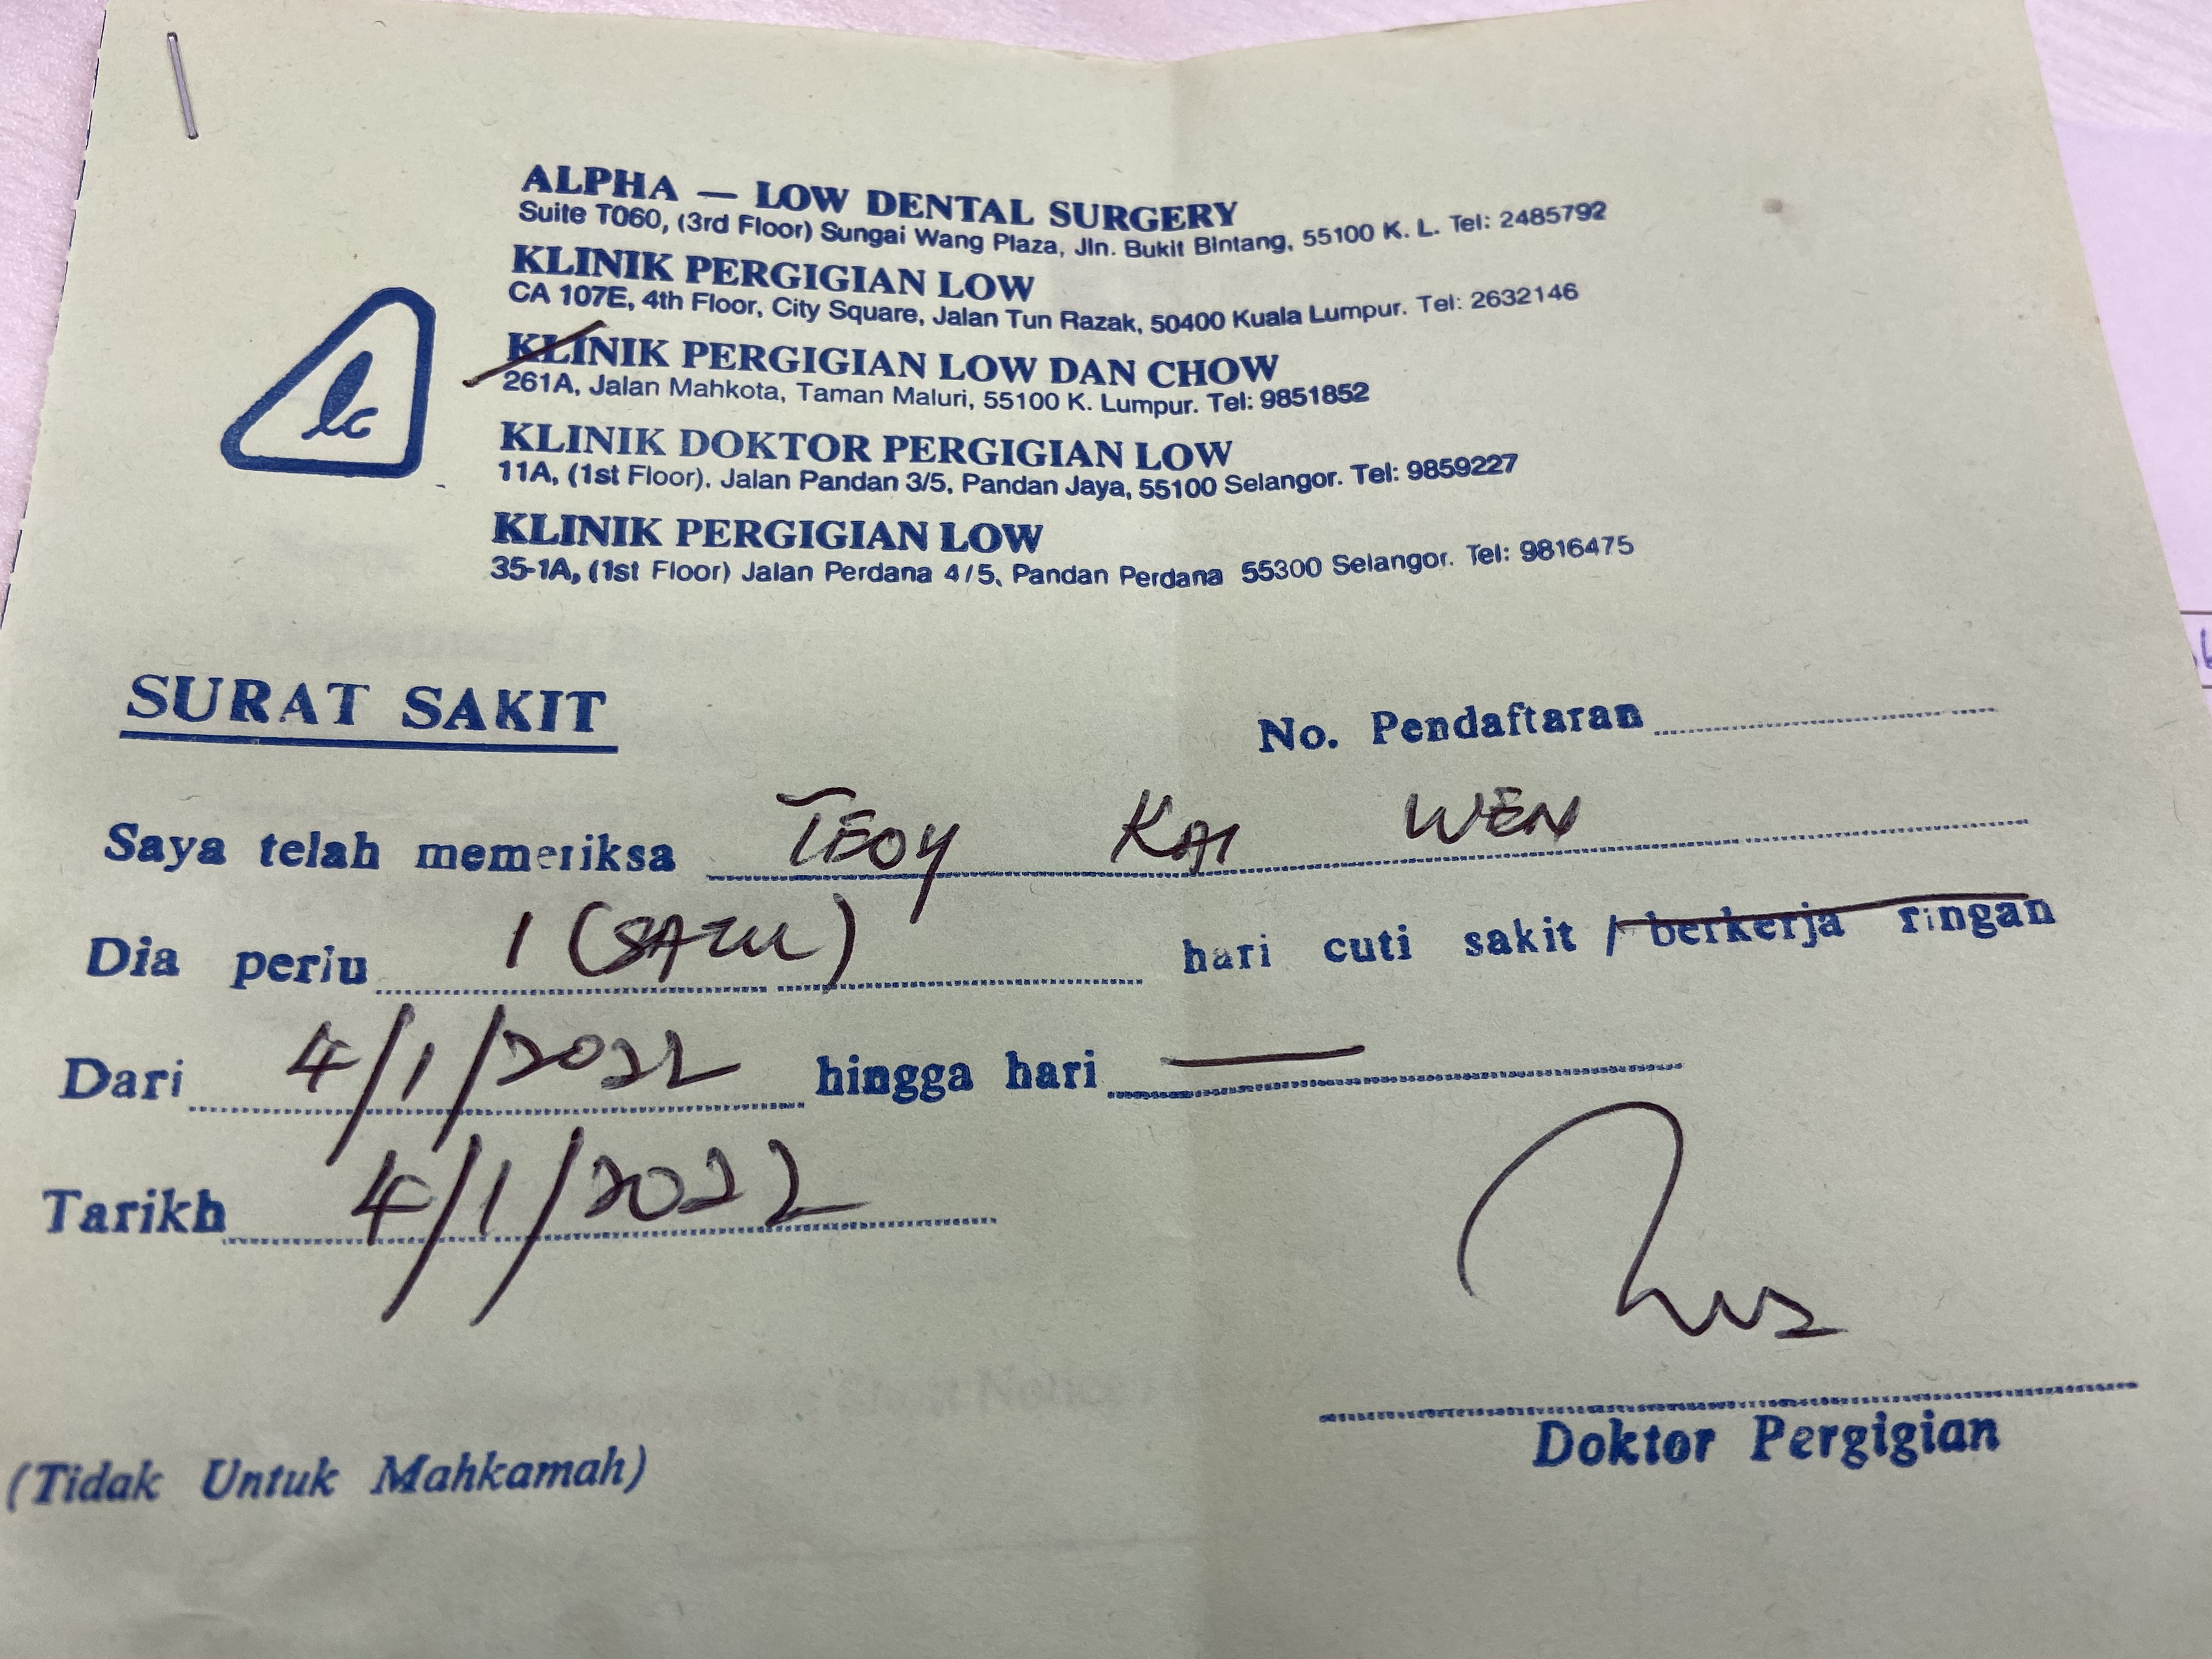 lc
ALPHA — LOW DENTAL SURGERY
Suite T060, (3rd Floor) Sungai Wang Plaza, Jln. Bukit Bintang, 55100 K. L. Tel: 2485792
KLINIK PERGIGIAN LOW
CA 107E, 4th Floor, City Square, Jalan Tun Razak, 50400 Kuala Lumpur. Tel: 2632146
KLINIK PERGIGIAN LOW DAN CHOW
261A, Jalan Mahkota, Taman Maluri, 55100 K. Lumpur. Tel: 9851852
KLINIK DOKTOR PERGIGIAN LOW
11A, (1st Floor), Jalan Pandan 3/5, Pandan Jaya, 55100 Selangor. Tel: 9859227
KLINIK PERGIGIAN LOW
35-1A, (1st Floor) Jalan Perdana 4/5, Pandan Perdana 55300 Selangor. Tel: 9816475
SURAT SAKIT
No. Pendaftaran
Saya telah memeriksa TEOY KAI WEN
Dia perlu 1 (SATU) hari cuti sakit / berkerja ringan
Dari 4/1/2022 hingga hari —
Tarikh 4/1/2022
Doktor Pergigian
(Tidak Untuk Mahkamah)